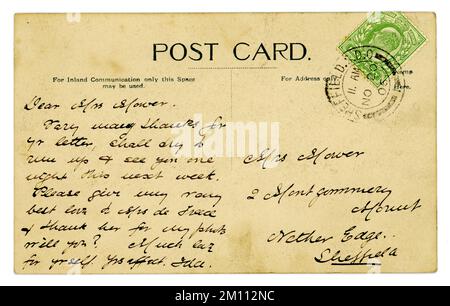 POST CARD.
For Inland Communication only this Space
may be used.
For Address on
Here.
Dear Mrs Mower.
Very many thanks for
yr letter, shall try to
run up & see you one
night this next week.
Please give my very
best love to Mrs de
& thank her for my photo
will you? Much love
for yrself. Yrs affect.
Mrs Mower
2 Montgommery
Mount
Nether Edge.
Sheffield
SHEFFIELD
11 AM
NO
05
alamy
Image ID: 2M112NC
www.alamy.com